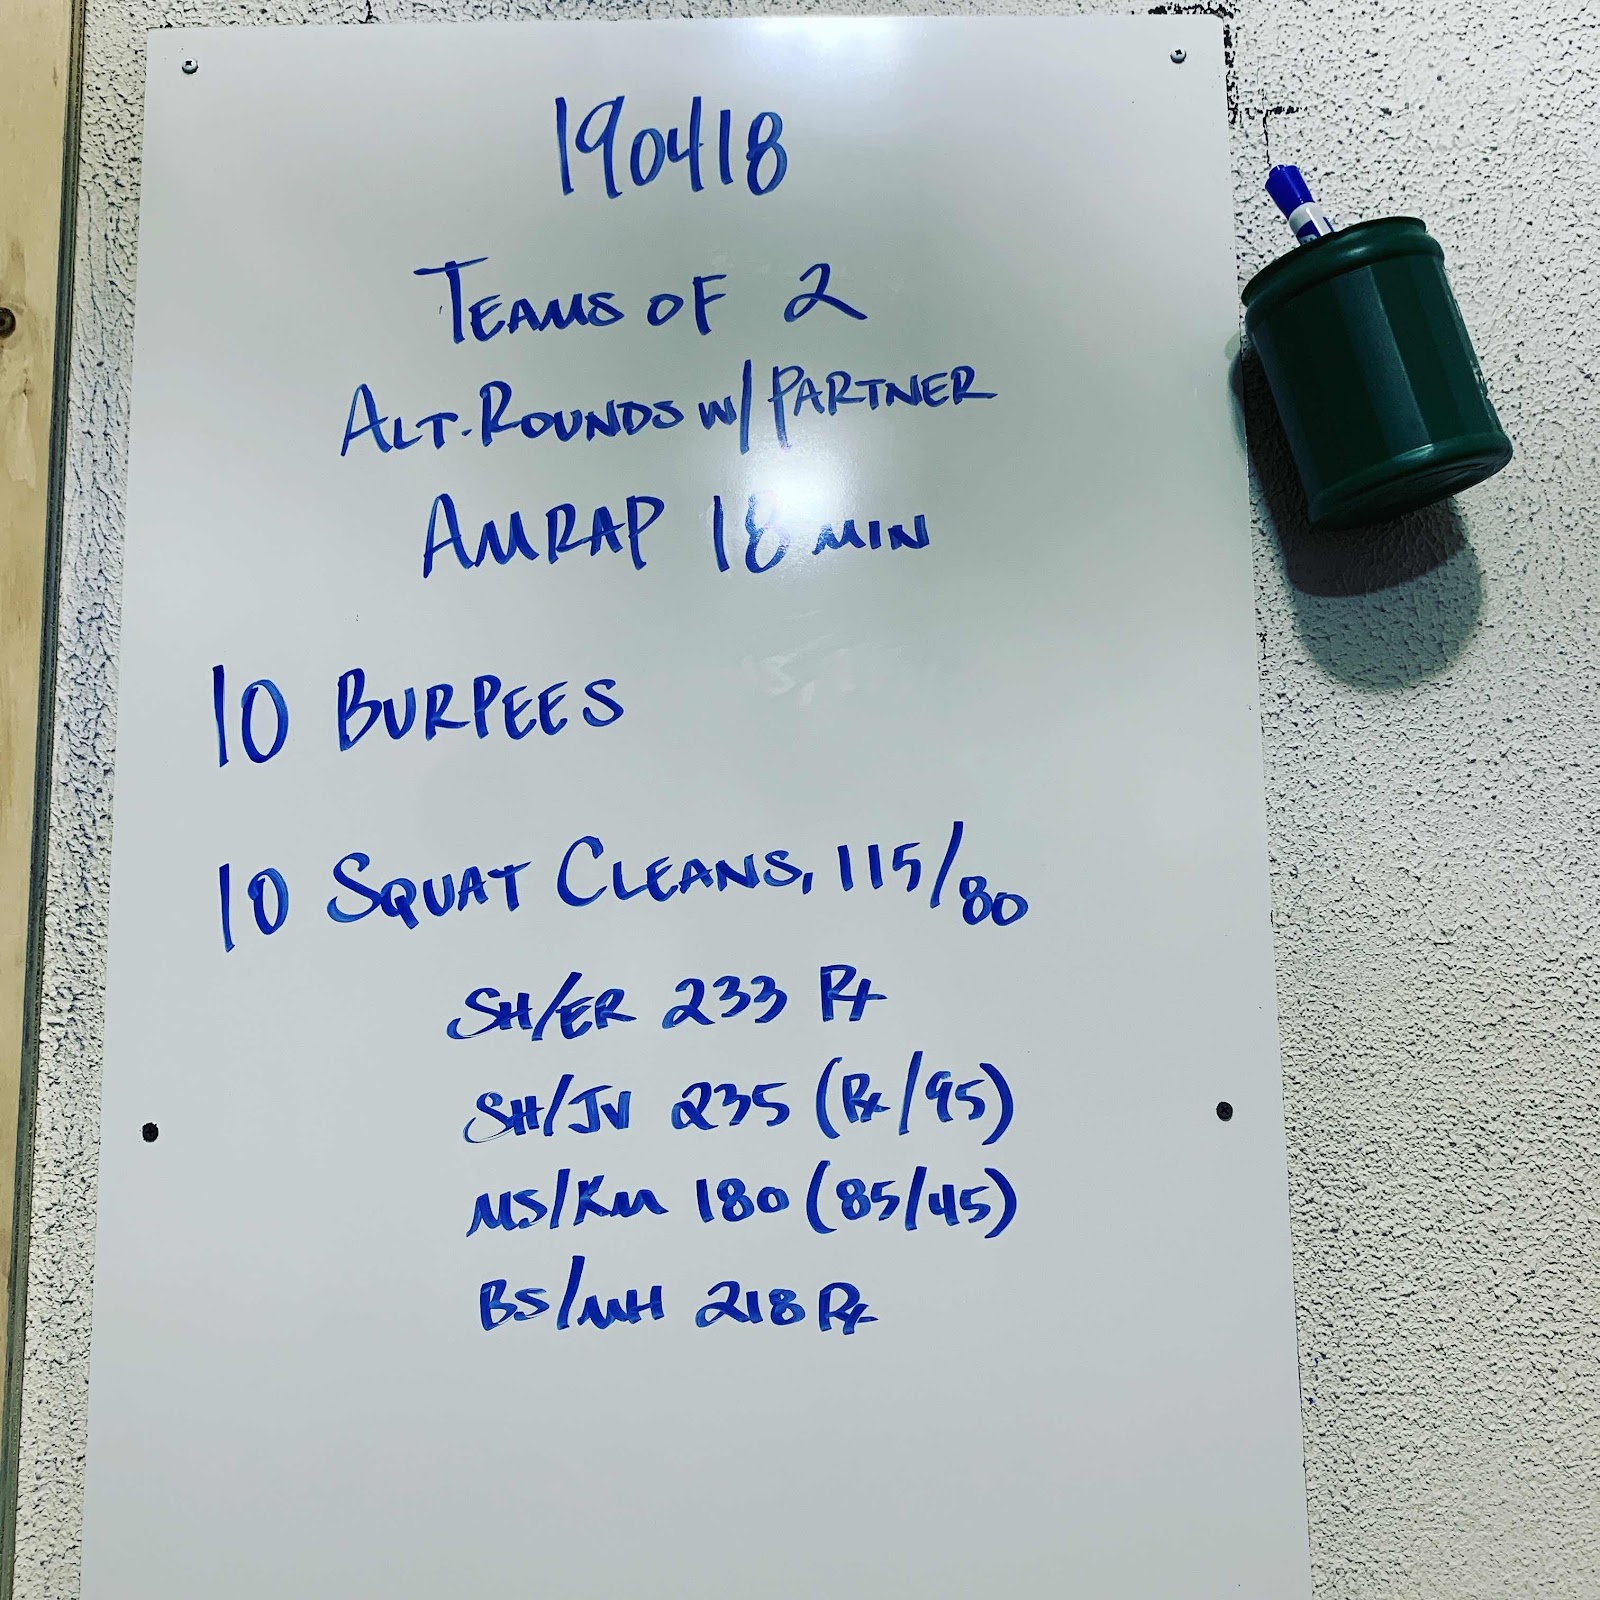 190418
TEAMS OF 2
ALT. ROUNDS W/ PARTNER
AMRAP 18 MIN
10 BURPEES
10 SQUAT CLEANS, 115/80
SH/ER 233 Rx
SH/JV 235 (Rx/95)
MS/KM 180 (85/45)
BS/MH 218 Rx